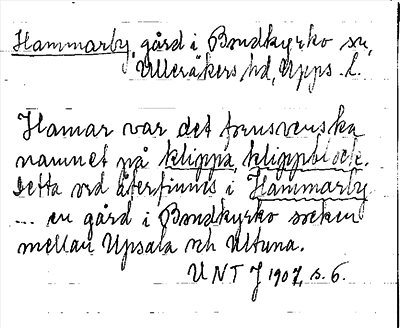 Hammarby, gård i Bondkyrko sn,
Ulleråkers hd, Upps. l.
Hamar var det fornsvenska
namnet på klippa, klippblock.
Detta ord återfinnes i Hammarby
... en gård i Bondkyrko socken
mellan Upsala och Ultuna.
UNT J 1907, s. 6.